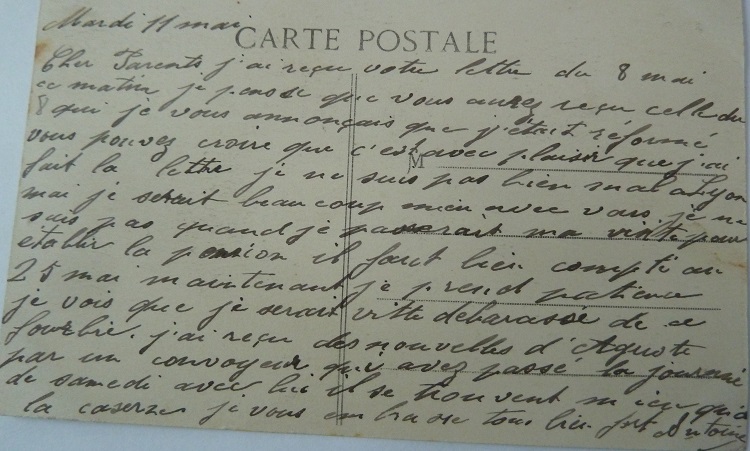 Mardi 11 mai
CARTE POSTALE
Cher Parents j'ai reçu votre lettre du 8 mai
ce matin je pense que vous aurez reçu celle du
8 qui je vous annonçais que j'était réformé
vous pouvez croire que c'est avec plaisir que j'ai
M
fait la lettre je ne suis pas bien mal a Lyon
mai je serait beaucoup mieu avec vous je ne
sais pas quand je passerait ma visite pour
etablir la pension il faut bien compté au
25 mai maintenant je prend patience
je vois que je serait vitte débarassé de ce
fourbie. j'ai reçu des nouvelles d'Aguste
par un convoyeur qui avez passé la journée
de samedi avec lui il se trouvent mieu qu'a
la caserne je vous embrasse tous bien fort Antoine